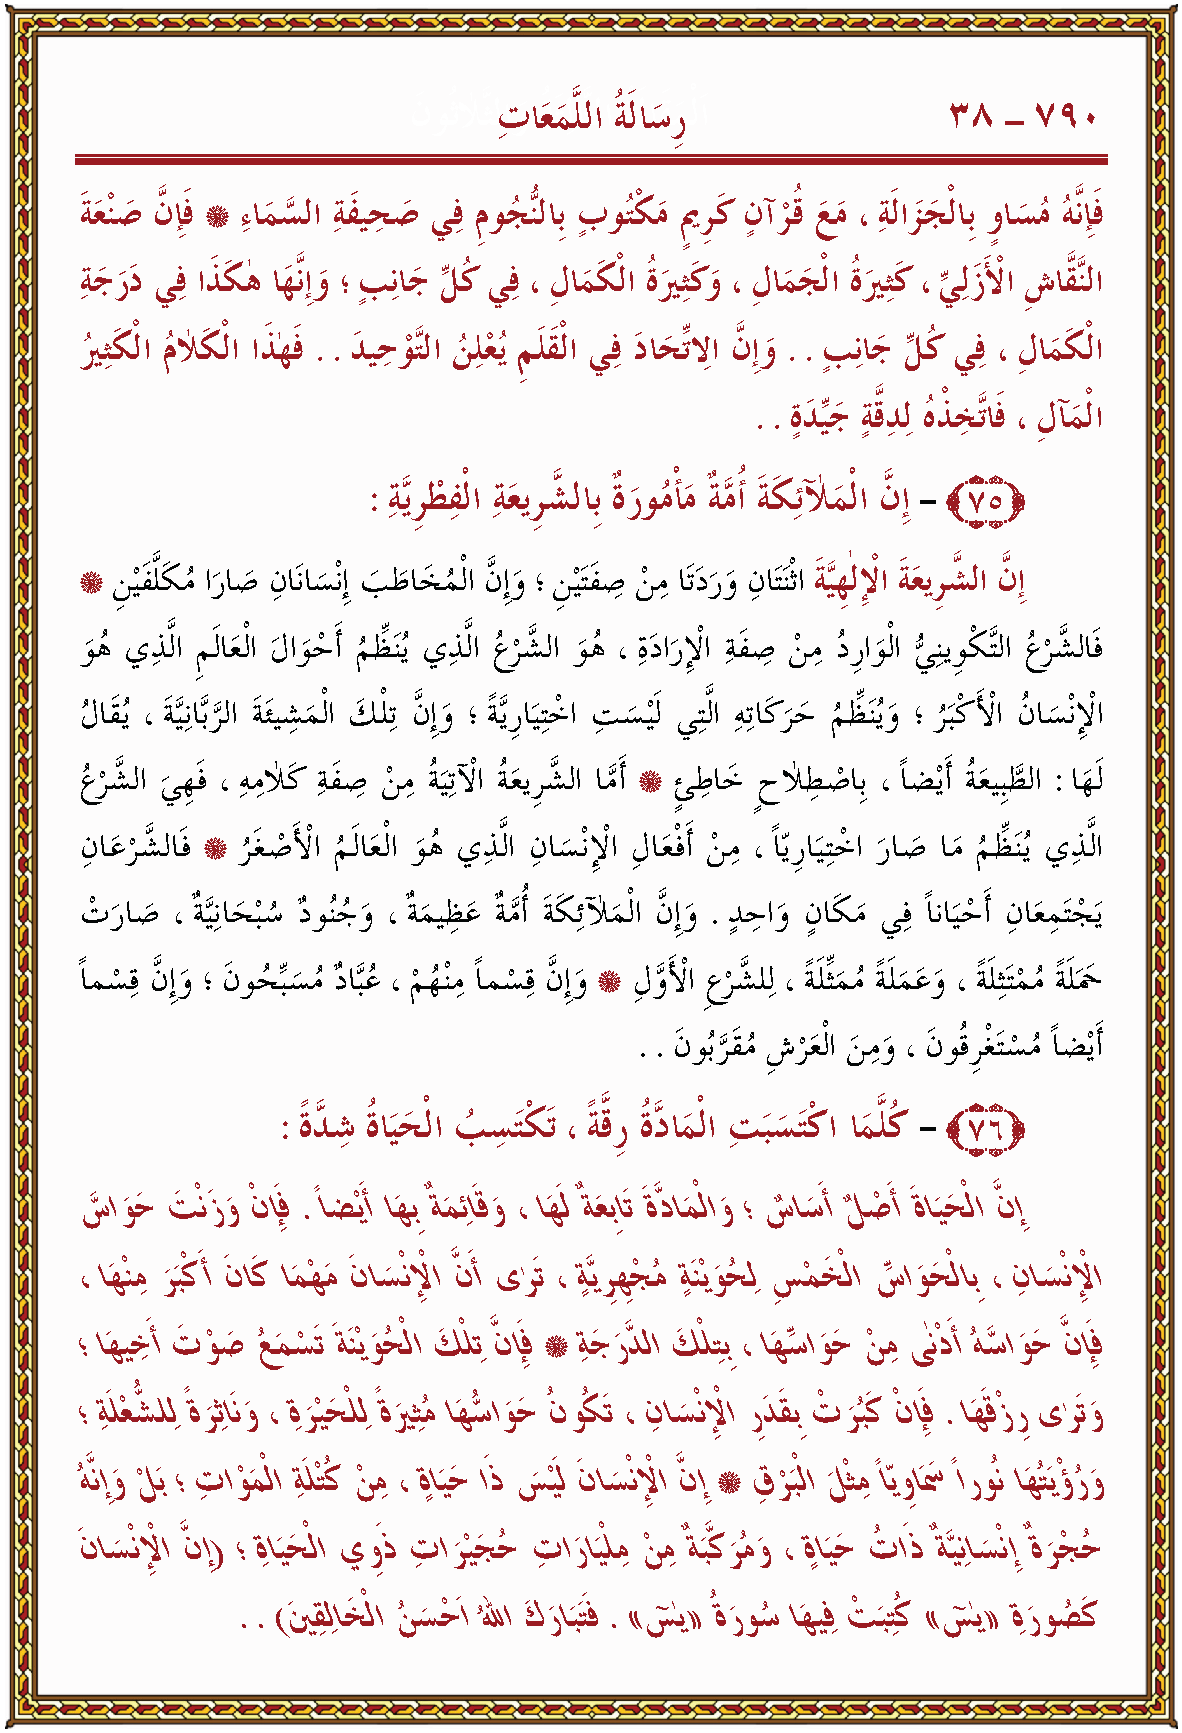 ٧٩٠ – ٣٨ رِسَالَةُ اللَّمَعَاتِ
فَإِنَّهُ مُسَاوٍ بِالْجَزَالَةِ ، مَعَ قُرْآنٍ كَرِيمٍ مَكْتُوبٍ بِالنُّجُومِ فِي صَحِيفَةِ السَّمَاءِ ۞ فَإِنَّ صَنْعَةَ
النَّقَّاشِ الْأَزَلِيِّ ، كَثِيرَةُ الْجَمَالِ ، وَكَثِيرَةُ الْكَمَالِ ، فِي كُلِّ جَانِبٍ ؛ وَإِنَّهَا هٰكَذَا فِي دَرَجَةِ
الْكَمَالِ ، فِي كُلِّ جَانِبٍ . . وَإِنَّ الِاتِّحَادَ فِي الْقَلَمِ يُعْلِنُ التَّوْحِيدَ . . فَهٰذَا الْكَلَامُ الْكَثِيرُ
الْمَآلِ ، فَاتَّخِذْهُ لِدِقَّةٍ جَيِّدَةٍ . .
﴿٧٥﴾ – إِنَّ الْمَلٰآئِكَةَ أُمَّةٌ مَأْمُورَةٌ بِالشَّرِيعَةِ الْفِطْرِيَّةِ :
إِنَّ الشَّرِيعَةَ الْإِلٰهِيَّةَ اثْنَتَانِ وَرَدَتَا مِنْ صِفَتَيْنِ ؛ وَإِنَّ الْمُخَاطَبَ إِنْسَانَانِ صَارَا مُكَلَّفَيْنِ ۞
فَالشَّرْعُ التَّكْوِينِيُّ الْوَارِدُ مِنْ صِفَةِ الْإِرَادَةِ ، هُوَ الشَّرْعُ الَّذِي يُنَظِّمُ أَحْوَالَ الْعَالَمِ الَّذِي هُوَ
الْإِنْسَانُ الْأَكْبَرُ ؛ وَيُنَظِّمُ حَرَكَاتِهِ الَّتِي لَيْسَتِ اخْتِيَارِيَّةً ؛ وَإِنَّ تِلْكَ الْمَشِيئَةَ الرَّبَّانِيَّةَ ، يُقَالُ
لَهَا : الطَّبِيعَةُ أَيْضاً ، بِاصْطِلَاحٍ خَاطِئٍ ۞ أَمَّا الشَّرِيعَةُ الْآتِيَةُ مِنْ صِفَةِ كَلَامِهِ ، فَهِيَ الشَّرْعُ
الَّذِي يُنَظِّمُ مَا صَارَ اخْتِيَارِيّاً ، مِنْ أَفْعَالِ الْإِنْسَانِ الَّذِي هُوَ الْعَالَمُ الْأَصْغَرُ ۞ فَالشَّرْعَانِ
يَجْتَمِعَانِ أَحْيَاناً فِي مَكَانٍ وَاحِدٍ . وَإِنَّ الْمَلٰآئِكَةَ أُمَّةٌ عَظِيمَةٌ ، وَجُنُودٌ سُبْحَانِيَّةٌ ، صَارَتْ
حَمَلَةً مُمْتَثِلَةً ، وَعَمَلَةً مُمَثِّلَةً ، لِلشَّرْعِ الْأَوَّلِ ۞ وَإِنَّ قِسْماً مِنْهُمْ ، عُبَّادٌ مُسَبِّحُونَ ؛ وَإِنَّ قِسْماً
أَيْضاً مُسْتَغْرِقُونَ ، وَمِنَ الْعَرْشِ مُقَرَّبُونَ . .
﴿٧٦﴾ – كُلَّمَا اكْتَسَبَتِ الْمَادَّةُ رِقَّةً ، تَكْتَسِبُ الْحَيَاةُ شِدَّةً :
اِنَّ الْحَيَاةَ أَصْلٌ أَسَاسٌ ؛ وَالْمَادَّةَ تَابِعَةٌ لَهَا ، وَقَائِمَةٌ بِهَا أَيْضاً . فَإِنْ وَزَنْتَ حَوَاسَّ
الْإِنْسَانِ ، بِالْحَوَاسِّ الْخَمْسِ لِحُوَيْنَةٍ مُجْهِرِيَّةٍ ، تَرٰى أَنَّ الْإِنْسَانَ مَهْمَا كَانَ أَكْبَرَ مِنْهَا ،
فَإِنَّ حَوَاسَّهُ أَدْنٰى مِنْ حَوَاسِّهَا ، بِتِلْكَ الدَّرَجَةِ ۞ فَإِنَّ تِلْكَ الْحُوَيْنَةَ تَسْمَعُ صَوْتَ أَخِيهَا ؛
وَتَرٰى رِزْقَهَا . فَإِنْ كَبُرَتْ بِقَدَرِ الْإِنْسَانِ ، تَكُونُ حَوَاسُّهَا مُثِيرَةً لِلْحَيْرَةِ ، وَنَاثِرَةً لِلشُّعْلَةِ ؛
وَرُؤْيَتُهَا نُوراً سَمَاوِيّاً مِثْلَ الْبَرْقِ ۞ إِنَّ الْإِنْسَانَ لَيْسَ ذَا حَيَاةٍ ، مِنْ كُتْلَةِ الْمَوَاتِ ؛ بَلْ وَإِنَّهُ
حُجْرَةٌ إِنْسَانِيَّةٌ ذَاتُ حَيَاةٍ ، وَمُرَكَّبَةٌ مِنْ مِلْيَارَاتِ حُجَيْرَاتِ ذَوِي الْحَيَاةِ ؛ (إِنَّ الْإِنْسَانَ
كَصُورَةِ «يٰسٓ» كُتِبَتْ فِيهَا سُورَةُ «يٰسٓ» . فَتَبَارَكَ اللهُ اَحْسَنُ الْخَالِقِينَ) . .